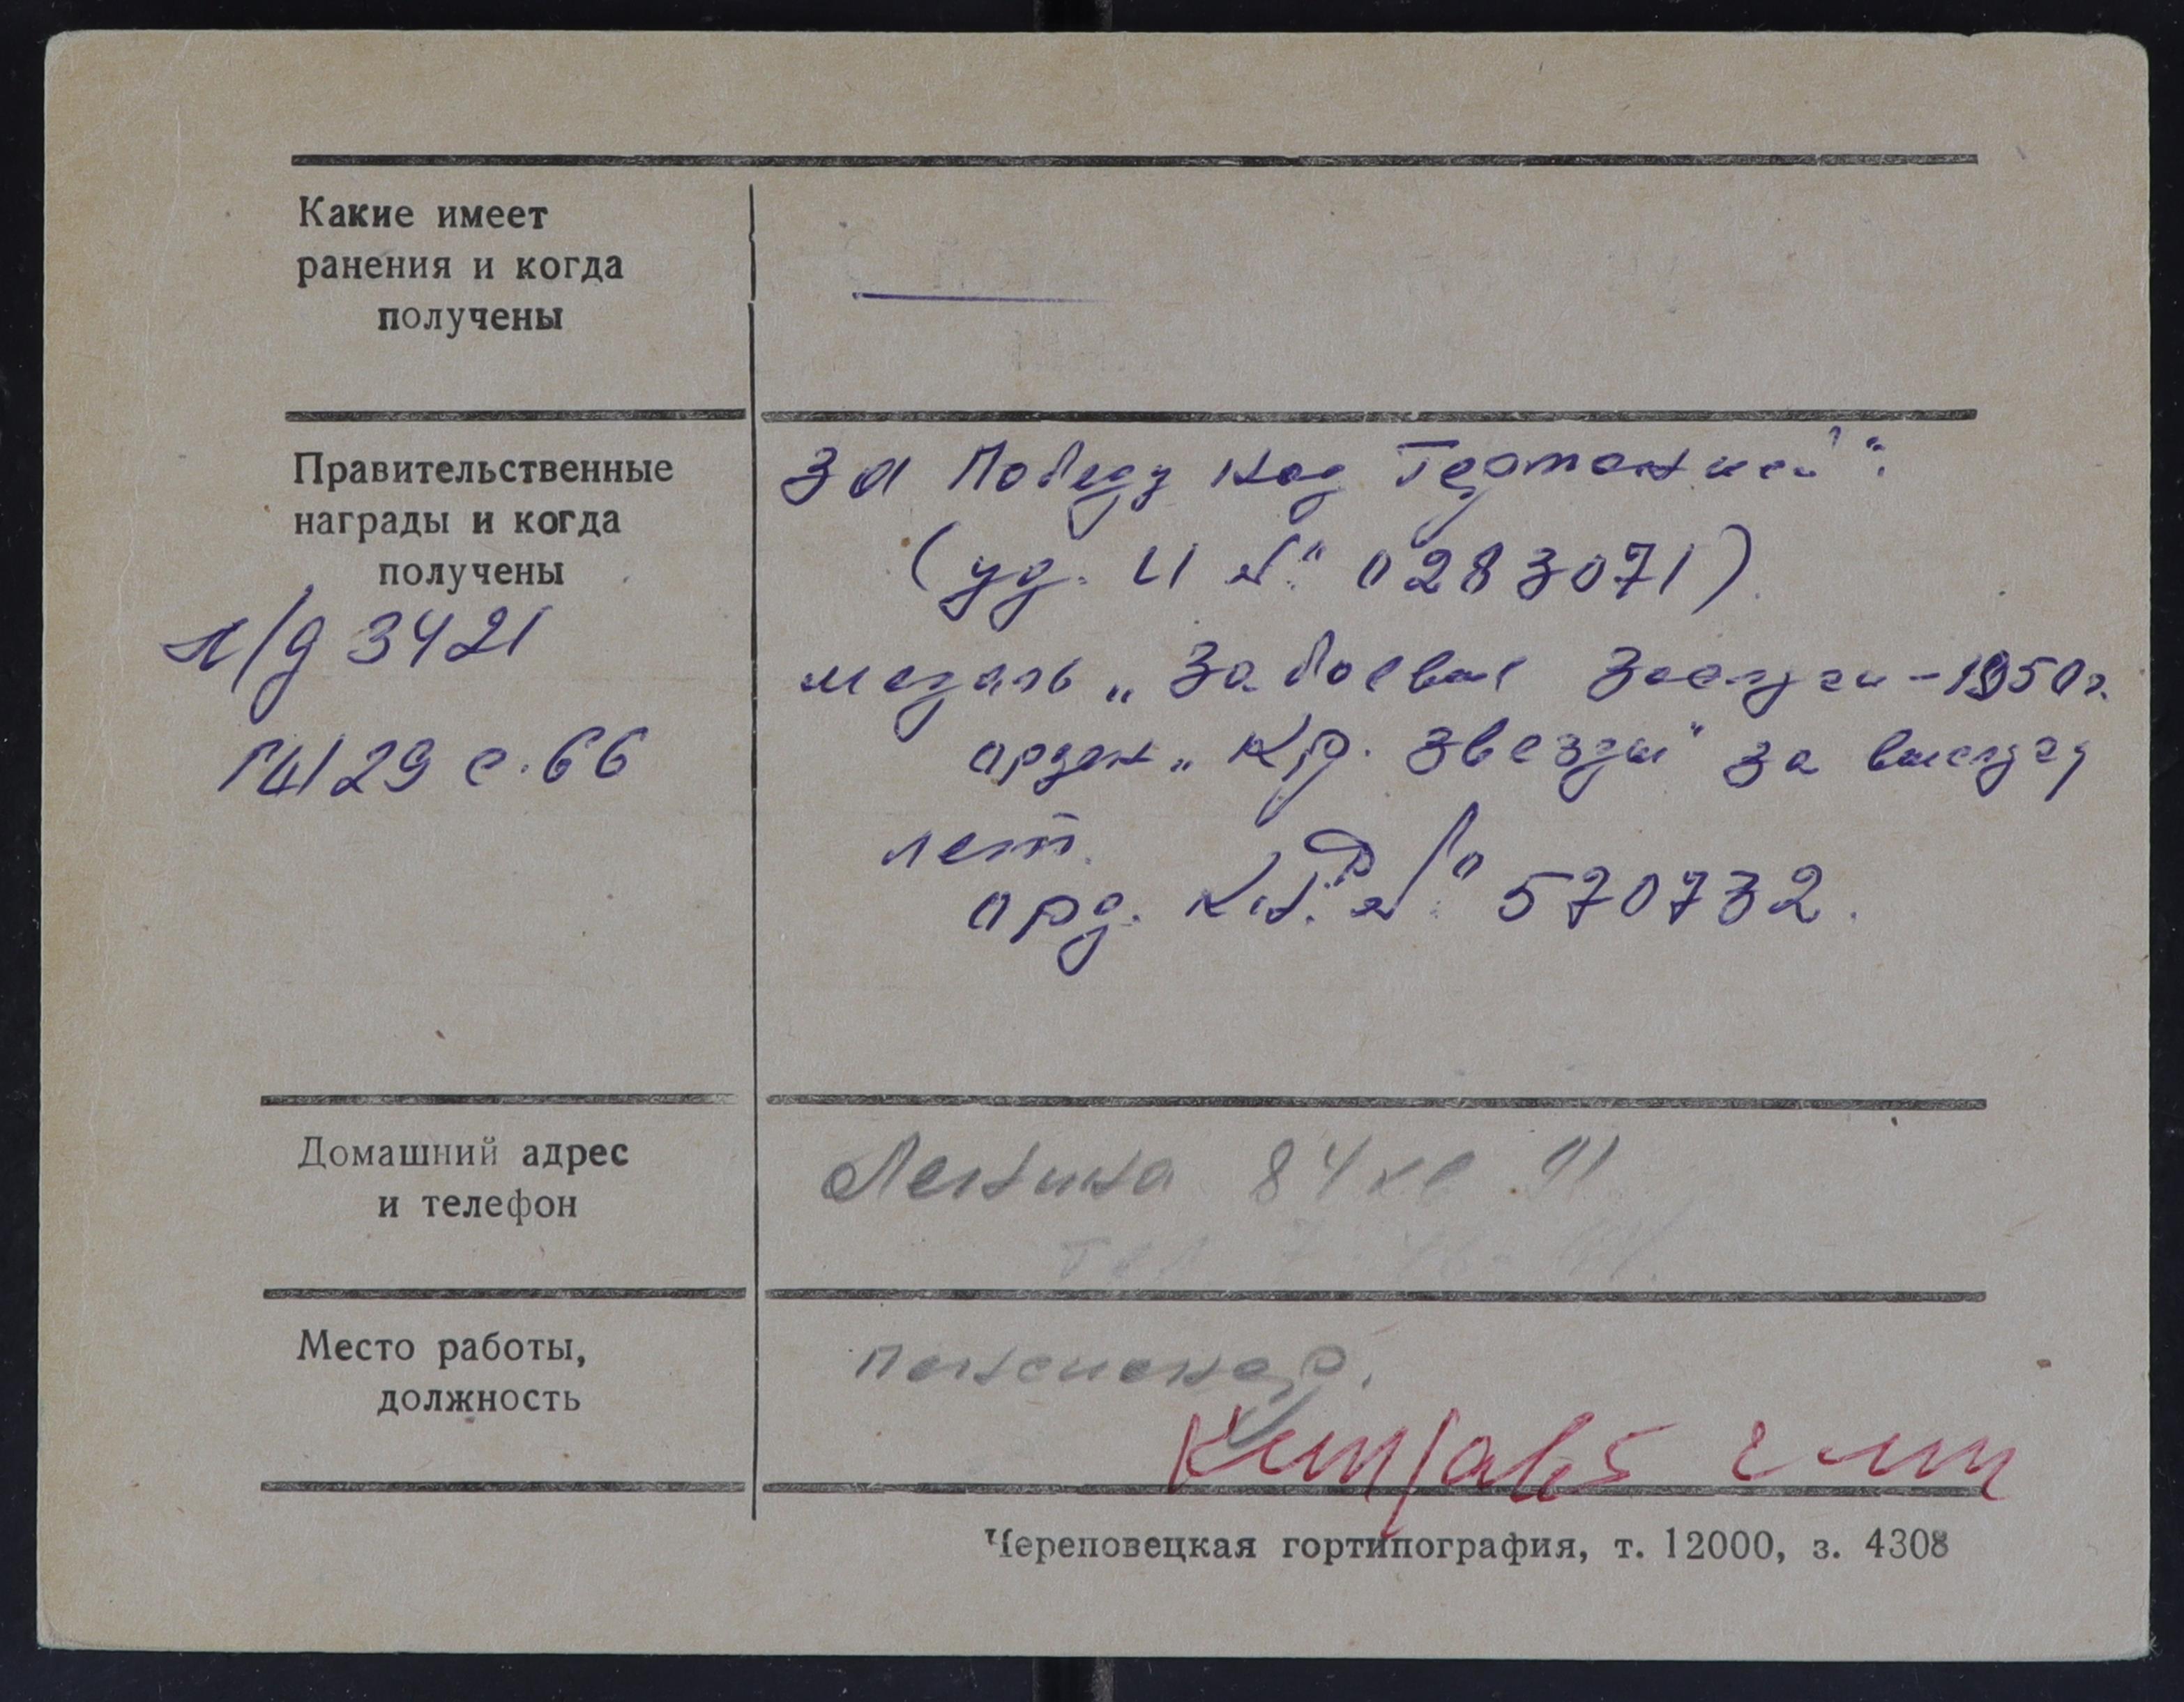 Какие имеет
ранения и когда
получены
—
Правительственные
награды и когда
получены
л/д 3421
14/29 с. 66
За Победу над Германией":
(уд. И №° 0283071).
медаль „За боевые заслуги - 1950 г.
орден „Кр. Звезды" за выслугу
лет.
орд. №° 570732.
Домашний адрес
и телефон
Ленина 84 кв 91
тел.
Место работы,
должность
пенсионер.
Череповецкая гортипография, т. 12000, з. 4308